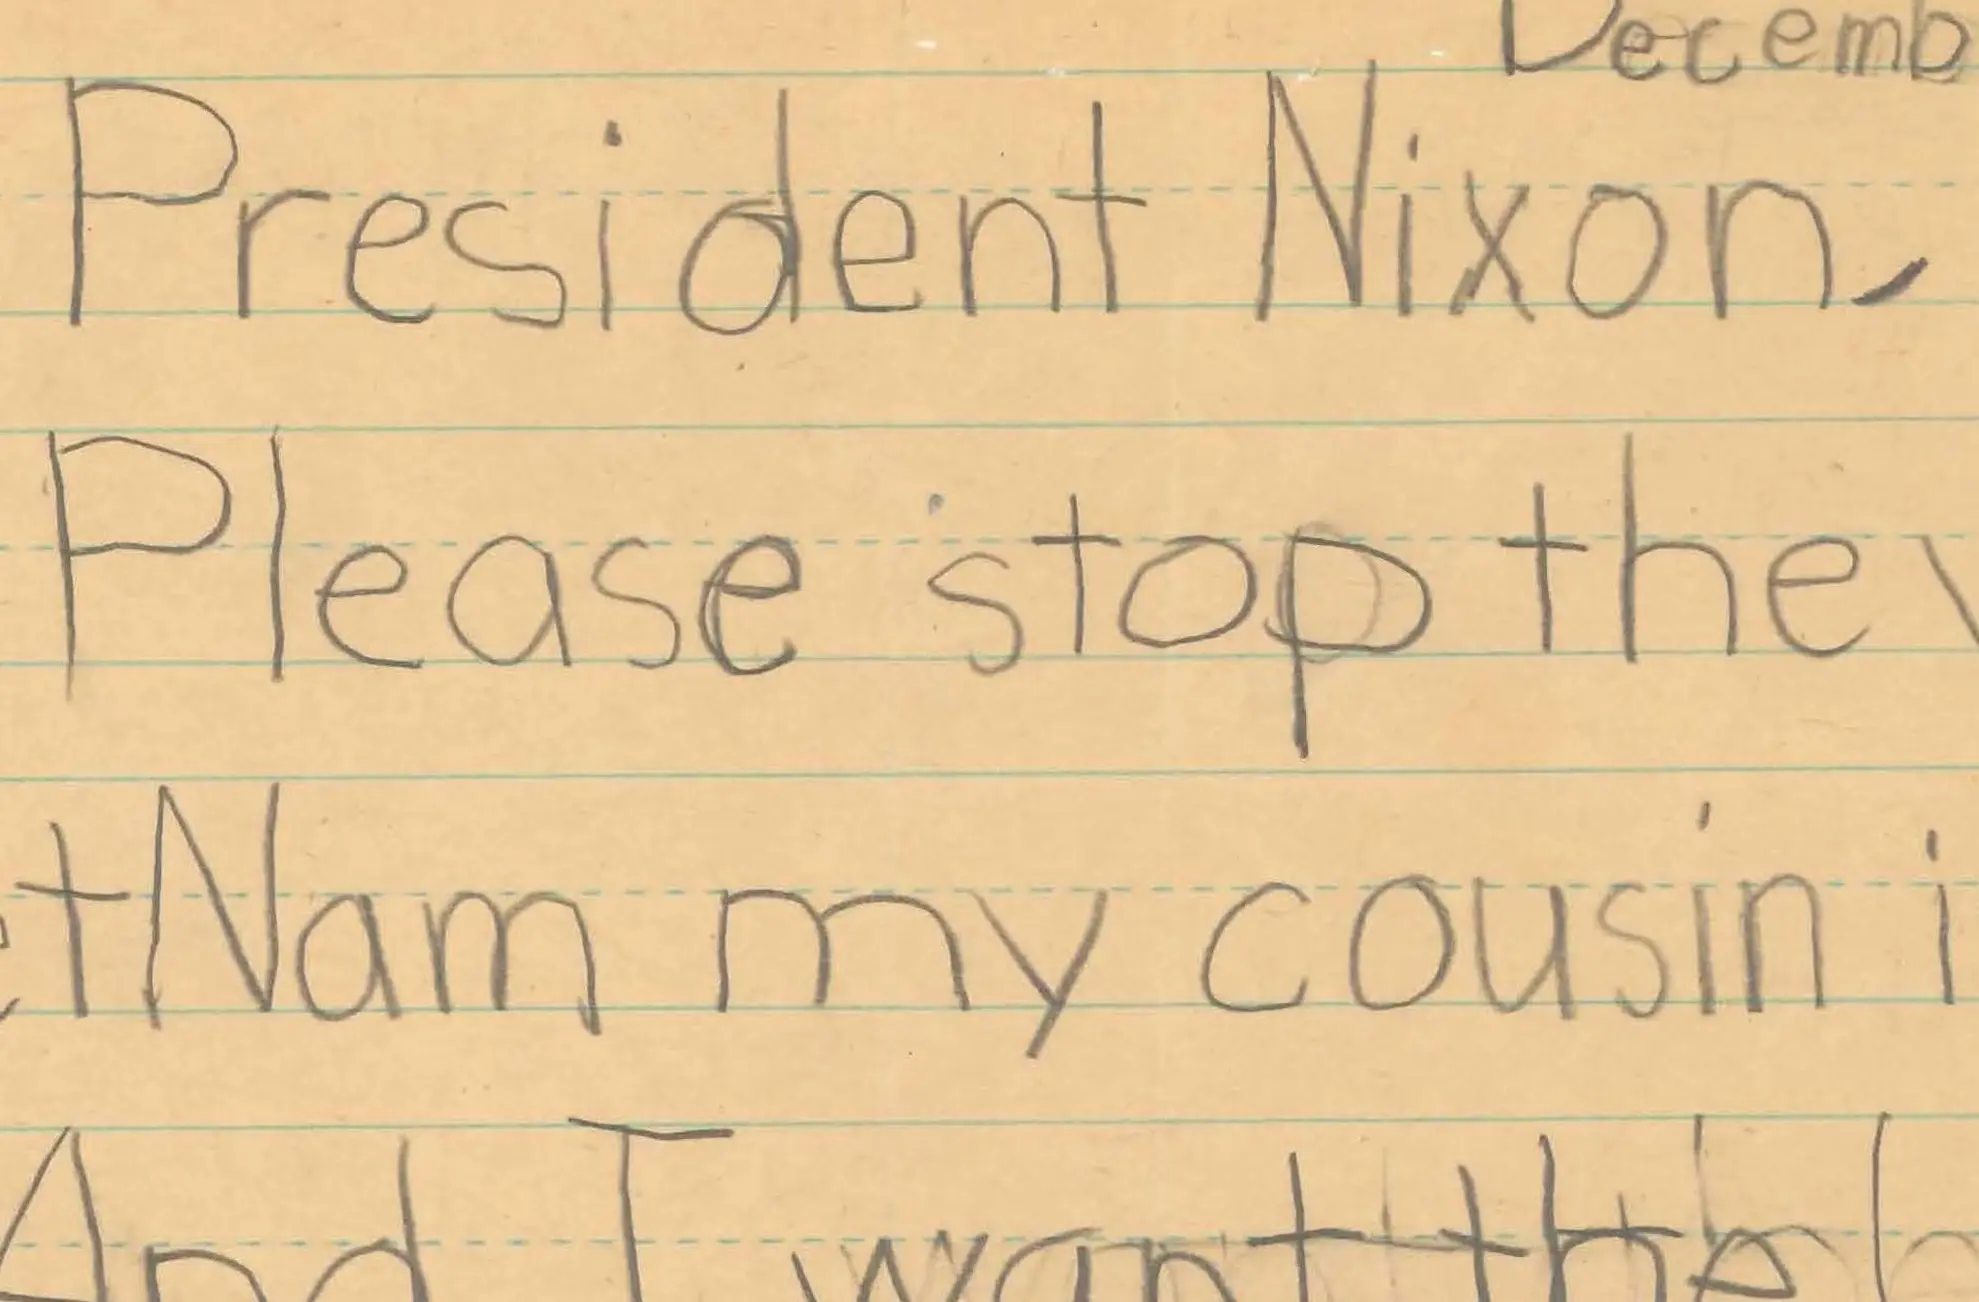 Decemb
President Nixon,
Please stop the
etNam my cousin i
And I want the